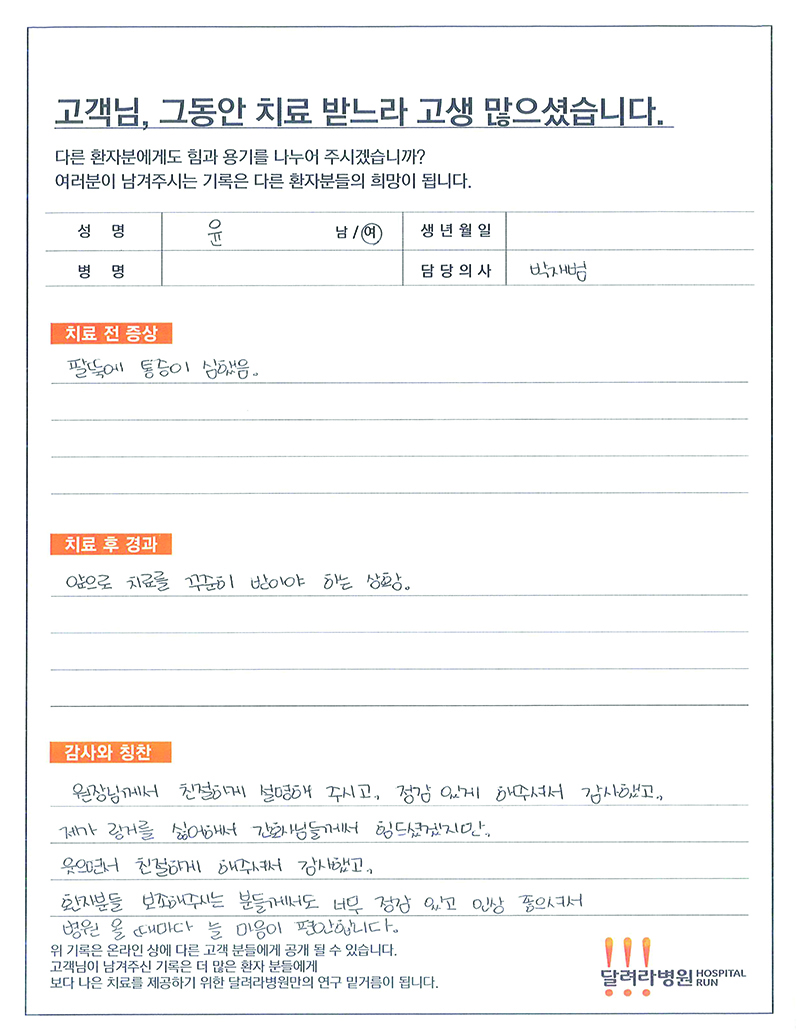 고객님, 그동안 치료 받느라 고생 많으셨습니다.
다른 환자분에게도 힘과 용기를 나누어 주시겠습니까?
여러분이 남겨주시는 기록은 다른 환자분들의 희망이 됩니다.
성 명 윤 남 / 여 생 년 월 일
병 명 담 당 의 사 박재범
치료 전 증상
팔뚝에 통증이 심했음.
치료 후 경과
앞으로 치료를 꾸준히 받아야 하는 상황.
감사와 칭찬
원장님께서 친절하게 설명해 주시고., 정감 있게 해주셔서 감사했고.,
제가 링거를 싫어해서 간호사님들께서 힘드셨겠지만.,
웃으면서 친절하게 해주셔서 감사했고.,
환자분들 보조해주시는 분들께서도 너무 정감 있고 인상 좋으셔서
병원 올 때마다 늘 마음이 편안합니다.
위 기록은 온라인 상에 다른 고객 분들에게 공개 될 수 있습니다.
고객님이 남겨주신 기록은 더 많은 환자 분들에게
보다 나은 치료를 제공하기 위한 달려라병원만의 연구 밑거름이 됩니다.
달려라병원 HOSPITAL RUN